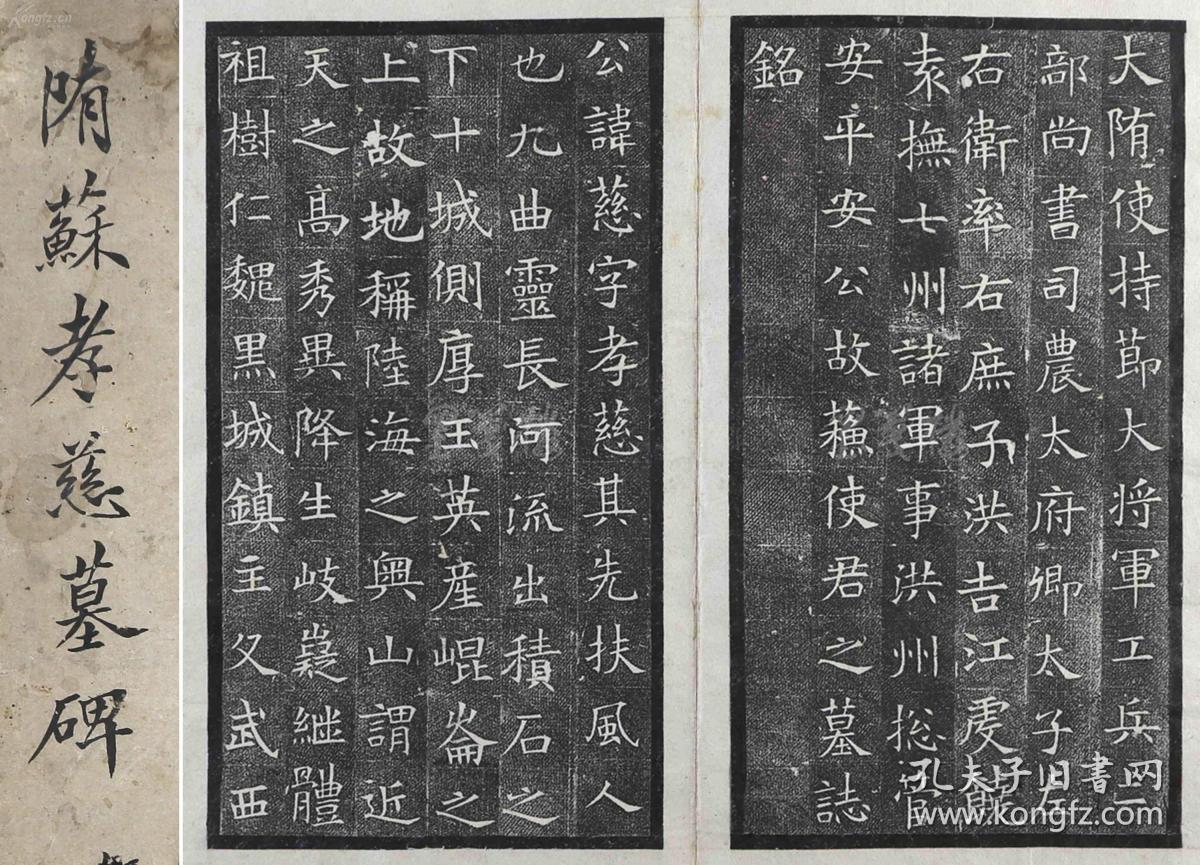 隋蘇孝慈墓碑
大隋使持節大将軍工兵二
部尚書司農太府卿太子左
右衛率右庶子洪吉江虔饒
袁撫七州諸軍事洪州揔管
安平安公故蘓使君之墓誌
銘
公諱慈字孝慈其先扶風人
也九曲靈長河流出積石之
下十城側厚玉英産崐崙之
上故地稱陸海之奥山謂近
天之髙秀異降生岐嶷継體
祖樹仁魏黒城鎮主父武西
孔夫子旧书网
www.kongfz.com
Kongfz.cn